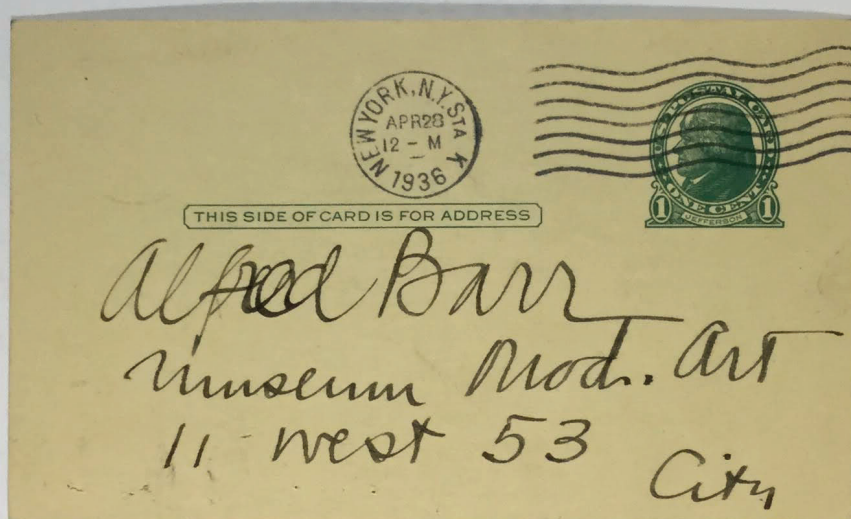 NEW YORK, N.Y. STA K
APR 28
12 - M
1936
U.S. POSTAL CARD
ONE CENT
1 JEFFERSON 1
THIS SIDE OF CARD IS FOR ADDRESS
Alfred Barr
Museum Mod. Art
11 West 53
City